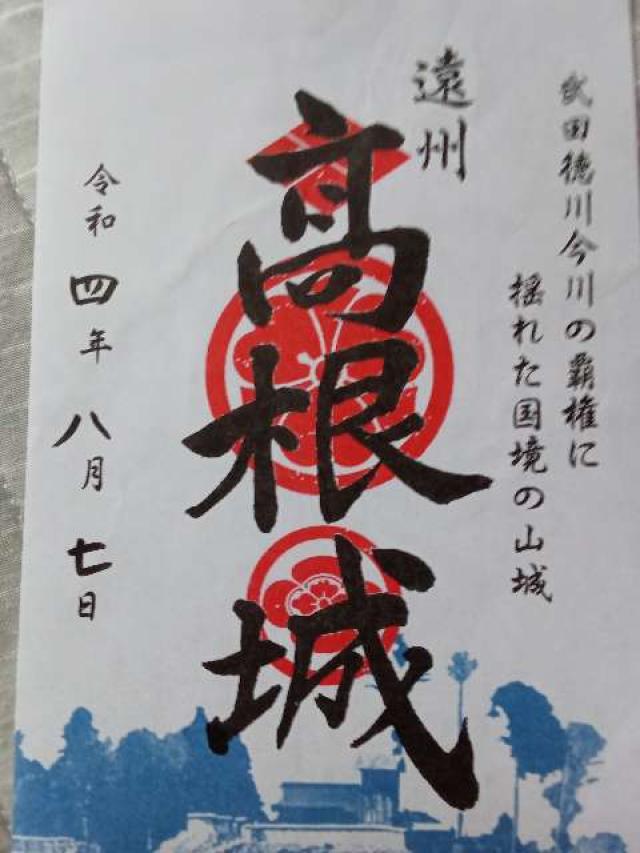 武田徳川今川の覇権に
揺れた国境の山城
遠州
高根城
令和四年八月七日